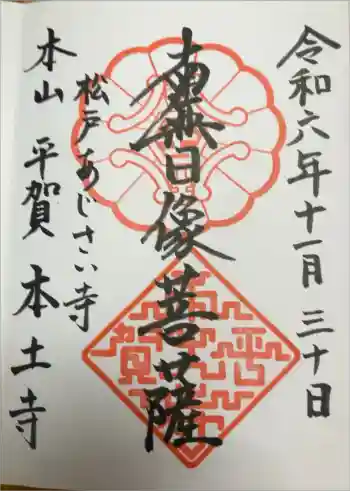 令和六年十一月三十日
南無日像菩薩
松戸あじさい寺
本山 平賀 本土寺
平
賀